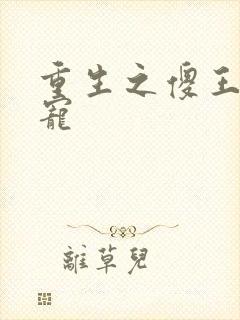 重生之傻王
寵
離草兒